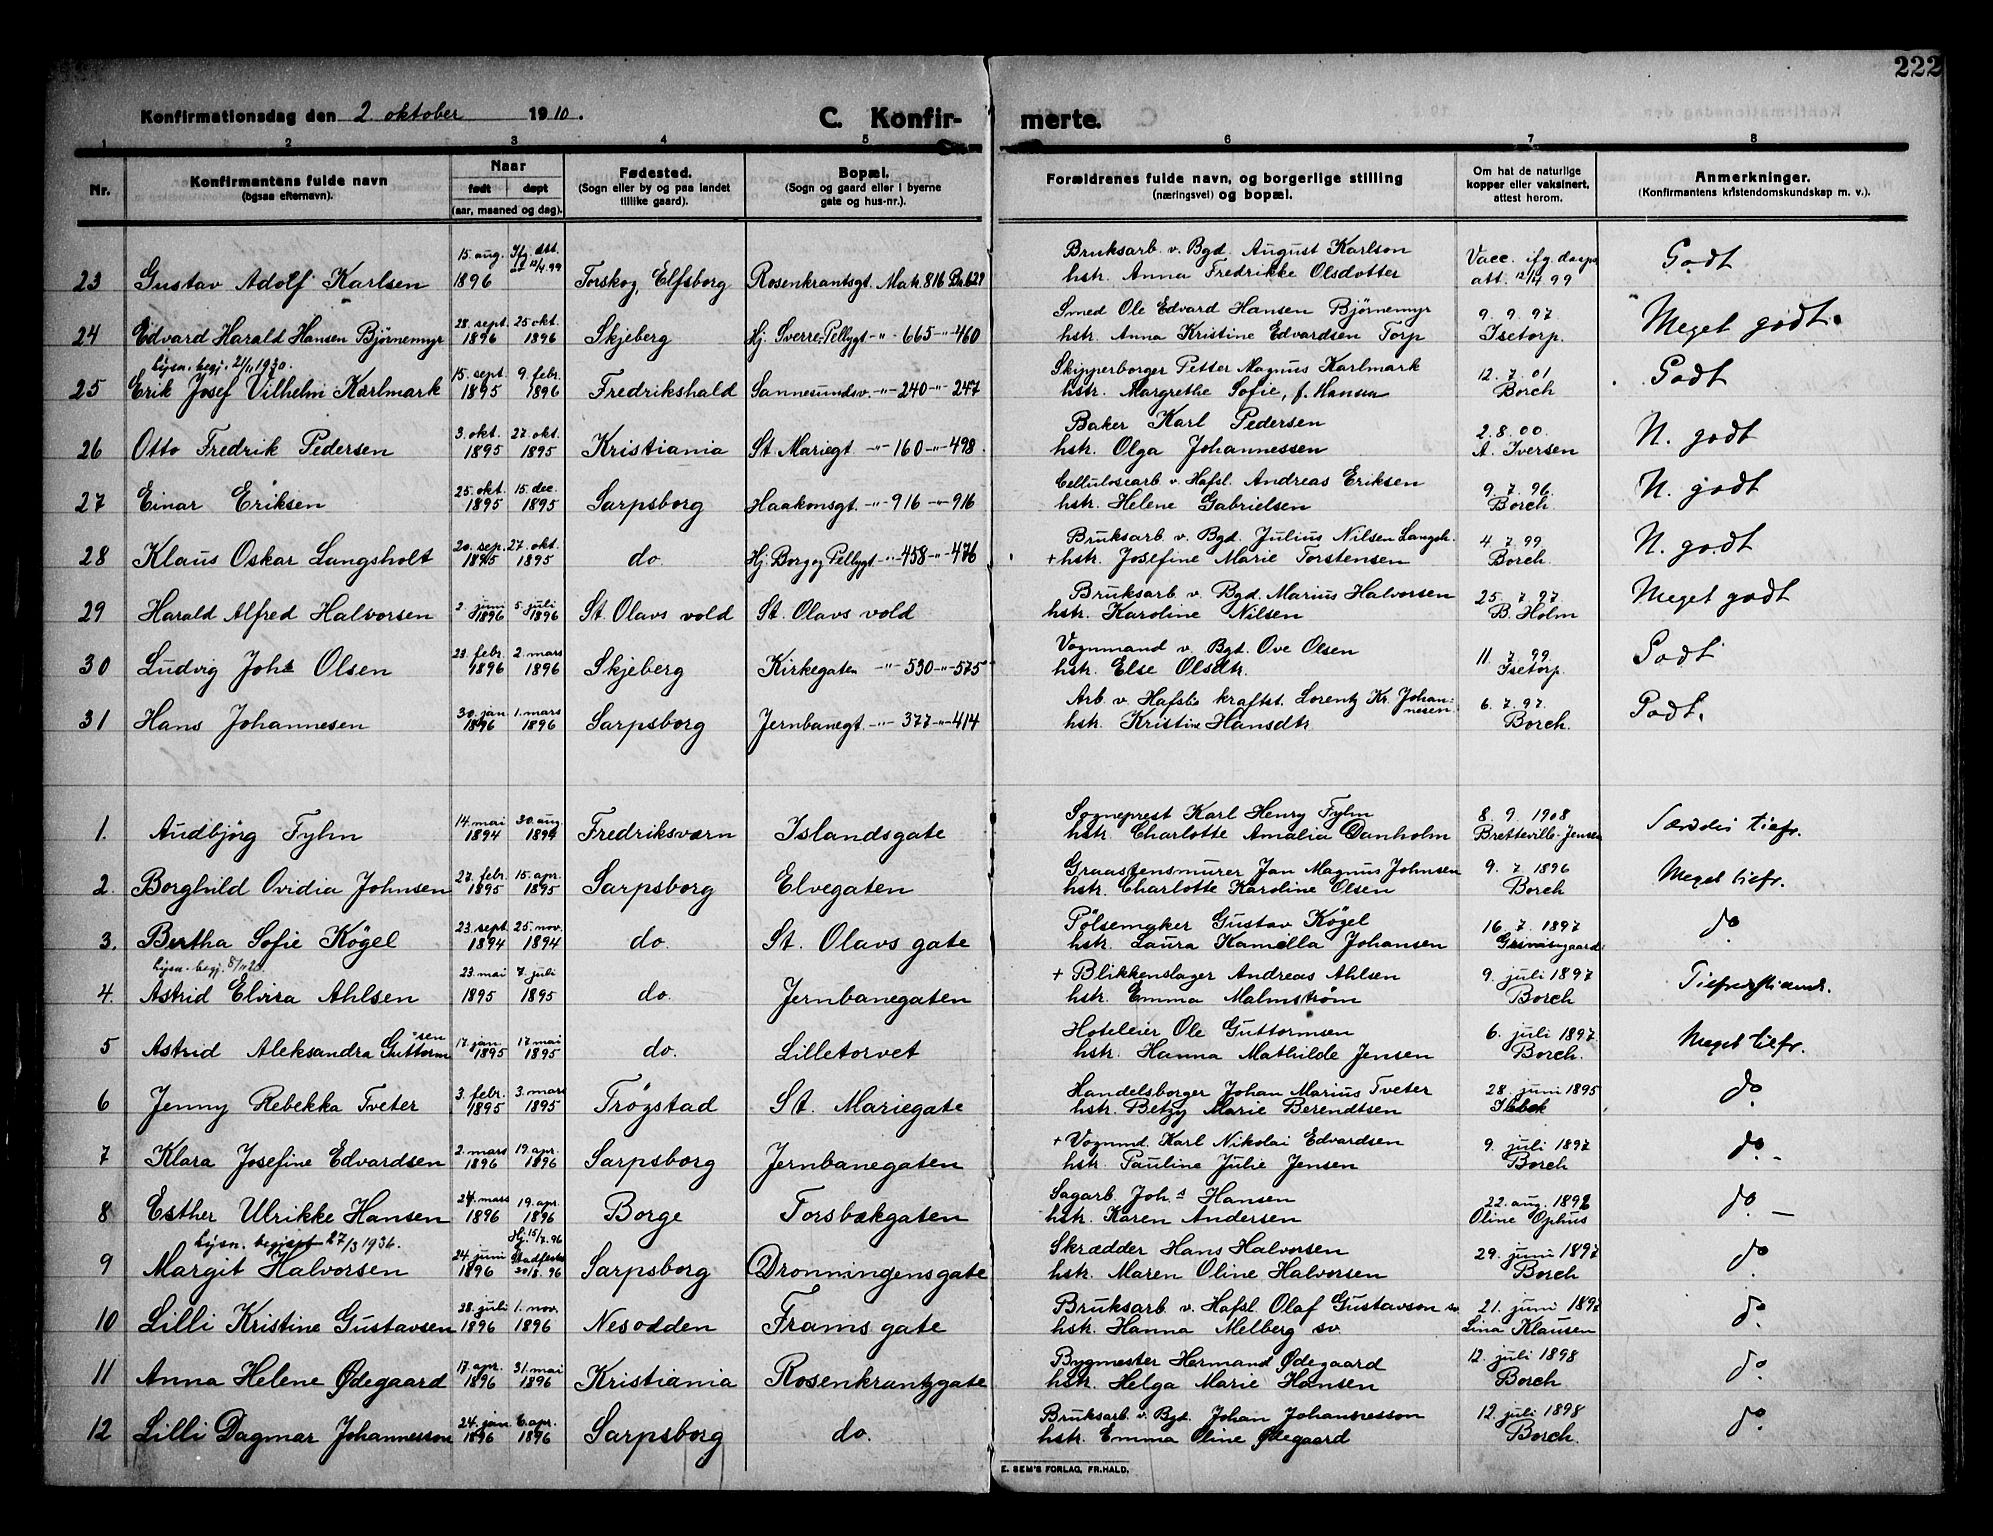 222
Konfirmationsdag den 2 oktober 1910.
C. Konfirmerte.
1 2 3 4 5 6 7 8
Nr.
Konfirmantens fulde navn
(ogsaa efternavn).
Naar
født døpt
(aar, maaned og dag).
Fødested.
(Sogn eller by og paa landet
tillike gaard).
Bopæl.
(Sogn og gaard eller i byerne
gate og hus-nr.).
Forældrenes fulde navn, og borgerlige stilling
(næringsvei) og bopæl.
Om hat de naturlige
kopper eller vaksinert,
attest herom.
Anmerkninger.
(Konfirmantens kristendomskundskap m. v.).
15. aug. Ifg. att. Bruksarb. v. Bgd. August Karlson Vacc. ifg. daaps
23 Gustav Adolf Karlsen 1896 12/4 99 Torskog, Elfsborg Rosenkrantsgt. Matr. 816 hstr. Anna Fredrikke Olsdotter att. 12/4 99 Godt
28. sept. 25. okt. Smed Ole Edvard Hansen Bjørnemyr 9. 9. 97.
24 Edvard Harald Hansen Bjørnemyr 1896 1896 Skjeberg Hj. Sverre-Pellygt -"- 665 -"- 460 hstr. Anna Kristine Edvardsen Torp Isetorp. Meget godt.
lysn. begj. 21/1 1930.
15. sept. 9. febr. Skipperborger Petter Magnus Karlmark 12. 7. 01
25 Erik Josef Vilhelm Karlmark 1895 1896 Fredrikshald Sannesundsv. -"- 240 -"- 247 hstr. Margrethe Sofie, f. Hansen Borch Godt
3. okt. 27. okt. Baker Karl Pedersen 2. 8. 00.
26 Otto Fredrik Pedersen 1895 1895 Kristiania St. Mariegt -"- 160 -"- 498. hstr. Olga Johannessen A. Iversen N. godt
25. okt. 15. dec. Cellulosearb. v. Hafsl. Andreas Eriksen 9. 7. 96.
27 Einar Eriksen 1895 1895 Sarpsborg Haakonsgt. -"- 916 -"- 916 hstr. Helene Gabrielsen Borch. N. godt
20. sep. 27. okt. Bruksarb. v. Bgd. Julius Nilsen Langsh. 4. 7. 99
28 Klaus Oskar Langsholt 1895 1895 do. Hj. Borg og Pellygt. -"- 458 -"- 476 + hstr. Josefine Marie Torstensen Borch. N. godt
2. juni 5. juli Bruksarb. v. Bgd. Marius Halvorsen 25. 7. 97.
29 Harald Alfred Halvorsen 1896 1896 St. Olavs vold St. Olavs vold hstr. Karoline Nilsen B. Holm Meget godt
23. febr. 2. mars Vognmand v. Bgd. Ove Olsen 11. 7. 99
30 Ludvig Johs Olsen 1896 1896 Skjeberg Kirkegaten -"- 530 -"- 575 hstr. Else Olsdtr. Isetorp. Godt
30. jan. 1. mars Arb. v. Hafsl. kraftst. Lorentz Kr. Johannesen 6. 7. 97.
31 Hans Johannesen 1896 1896 Sarpsborg Jernbanegt. -"- 377 -"- 414 hstr. Kristine Hansdtr. Borch. Godt.
14. mai 30. aug. Sogneprest Karl Henry Fyhn 8. 9. 1908
1. Audbjörg Fyhn 1894 1894 Fredriksværn Islandsgate hstr. Charlotte Amalia Danholm Bretteville-Jensen Særdeles tilfr.
27. febr. 15. apr. Graastensmurer Jan Magnus Johnsen 9. 7. 1896
2. Borghild Ovidia Johnsen 1895 1895 Sarpsborg Elvegaten hstr. Charlotte Karoline Olsen Borch Meget tilfr.
23. sept. 25. nov. Pølsemaker Gustav Kögel 16. 7. 1897
3. Bertha Sofie Kögel 1894 1894 do. St. Olavs gate hstr. Laura Kamilla Johansen do
lysn. begj. 8/1 20.
23. mai 7. juli + Blikkenslager Andreas Ahlsen 9. juli 1897
4. Astrid Elvira Ahlsen 1895 1895 do. Jernbanegaten hstr. Emma Malmstrøm Borch Tilfredsstillende.
17. jan. 17. mai Hoteleier Ole Guttormsen 6. juli 1897
5 Astrid Aleksandra Guttormsen 1895 1895 do. Lilletorvet hstr. Hanna Mathilde Jensen Borch. Meget tilfr.
3. febr. 3. mars Handelsborger Johan Marius Tveter 28. juni 1895
6 Jenny Rebekka Tveter 1895 1895 Trøgstad St. Mariegate hstr. Betzy Marie Berendtsen do
2. mars 19. apr. + Vognmd. Karl Nikolai Edvardsen 9. juli 1897
7 Klara Josefine Edvardsen 1896 1896 Sarpsborg Jernbanegaten hstr. Pauline Julie Jensen Borch do. -
24. mars 19. apr. Sagarb. Joh.s Hansen 22. aug. 1896
8 Esther Ulrikke Hansen 1896 1896 Borge Torsbækgaten hstr. Karen Andersen Oline Ophus do. -
lysn. begjært 27/3 1936. Hj. 15/7. 96
24. juni Stadfestet Skrædder Hans Halvorsen 29. juni 1897
9 Margit Halvorsen 1896 30/8. 96 Sarpsborg Dronningensgate hstr. Maren Oline Halvorsen Borch do.
28. juli 1. nov. Bruksarb. v. Hafsl. Olaf Gustavson sv. 21. juni 1897
10 Lilli Kristine Gustavsen 1896 1896 Nesodden Frams gate hstr. Hanna Melberg sv. Lina Klausen do.
17. apr. 31. mai Bygmester Hermand Ødegaard 12. juli 1898
11 Anna Helene Ødegaard 1896 1896 Kristiania Rosenkrantzgate hstr. Helga Marie Hansen Borch do.
24. jan. 6. apr. Bruksarb. v. Bgd. Johan Johannesson 12. juli 1898
12 Lilli Dagmar Johannesson 1896 1896 Sarpsborg do. hstr. Emma Oline Ødegaard Borch. do.
E. SEM'S FORLAG, FR.HALD.